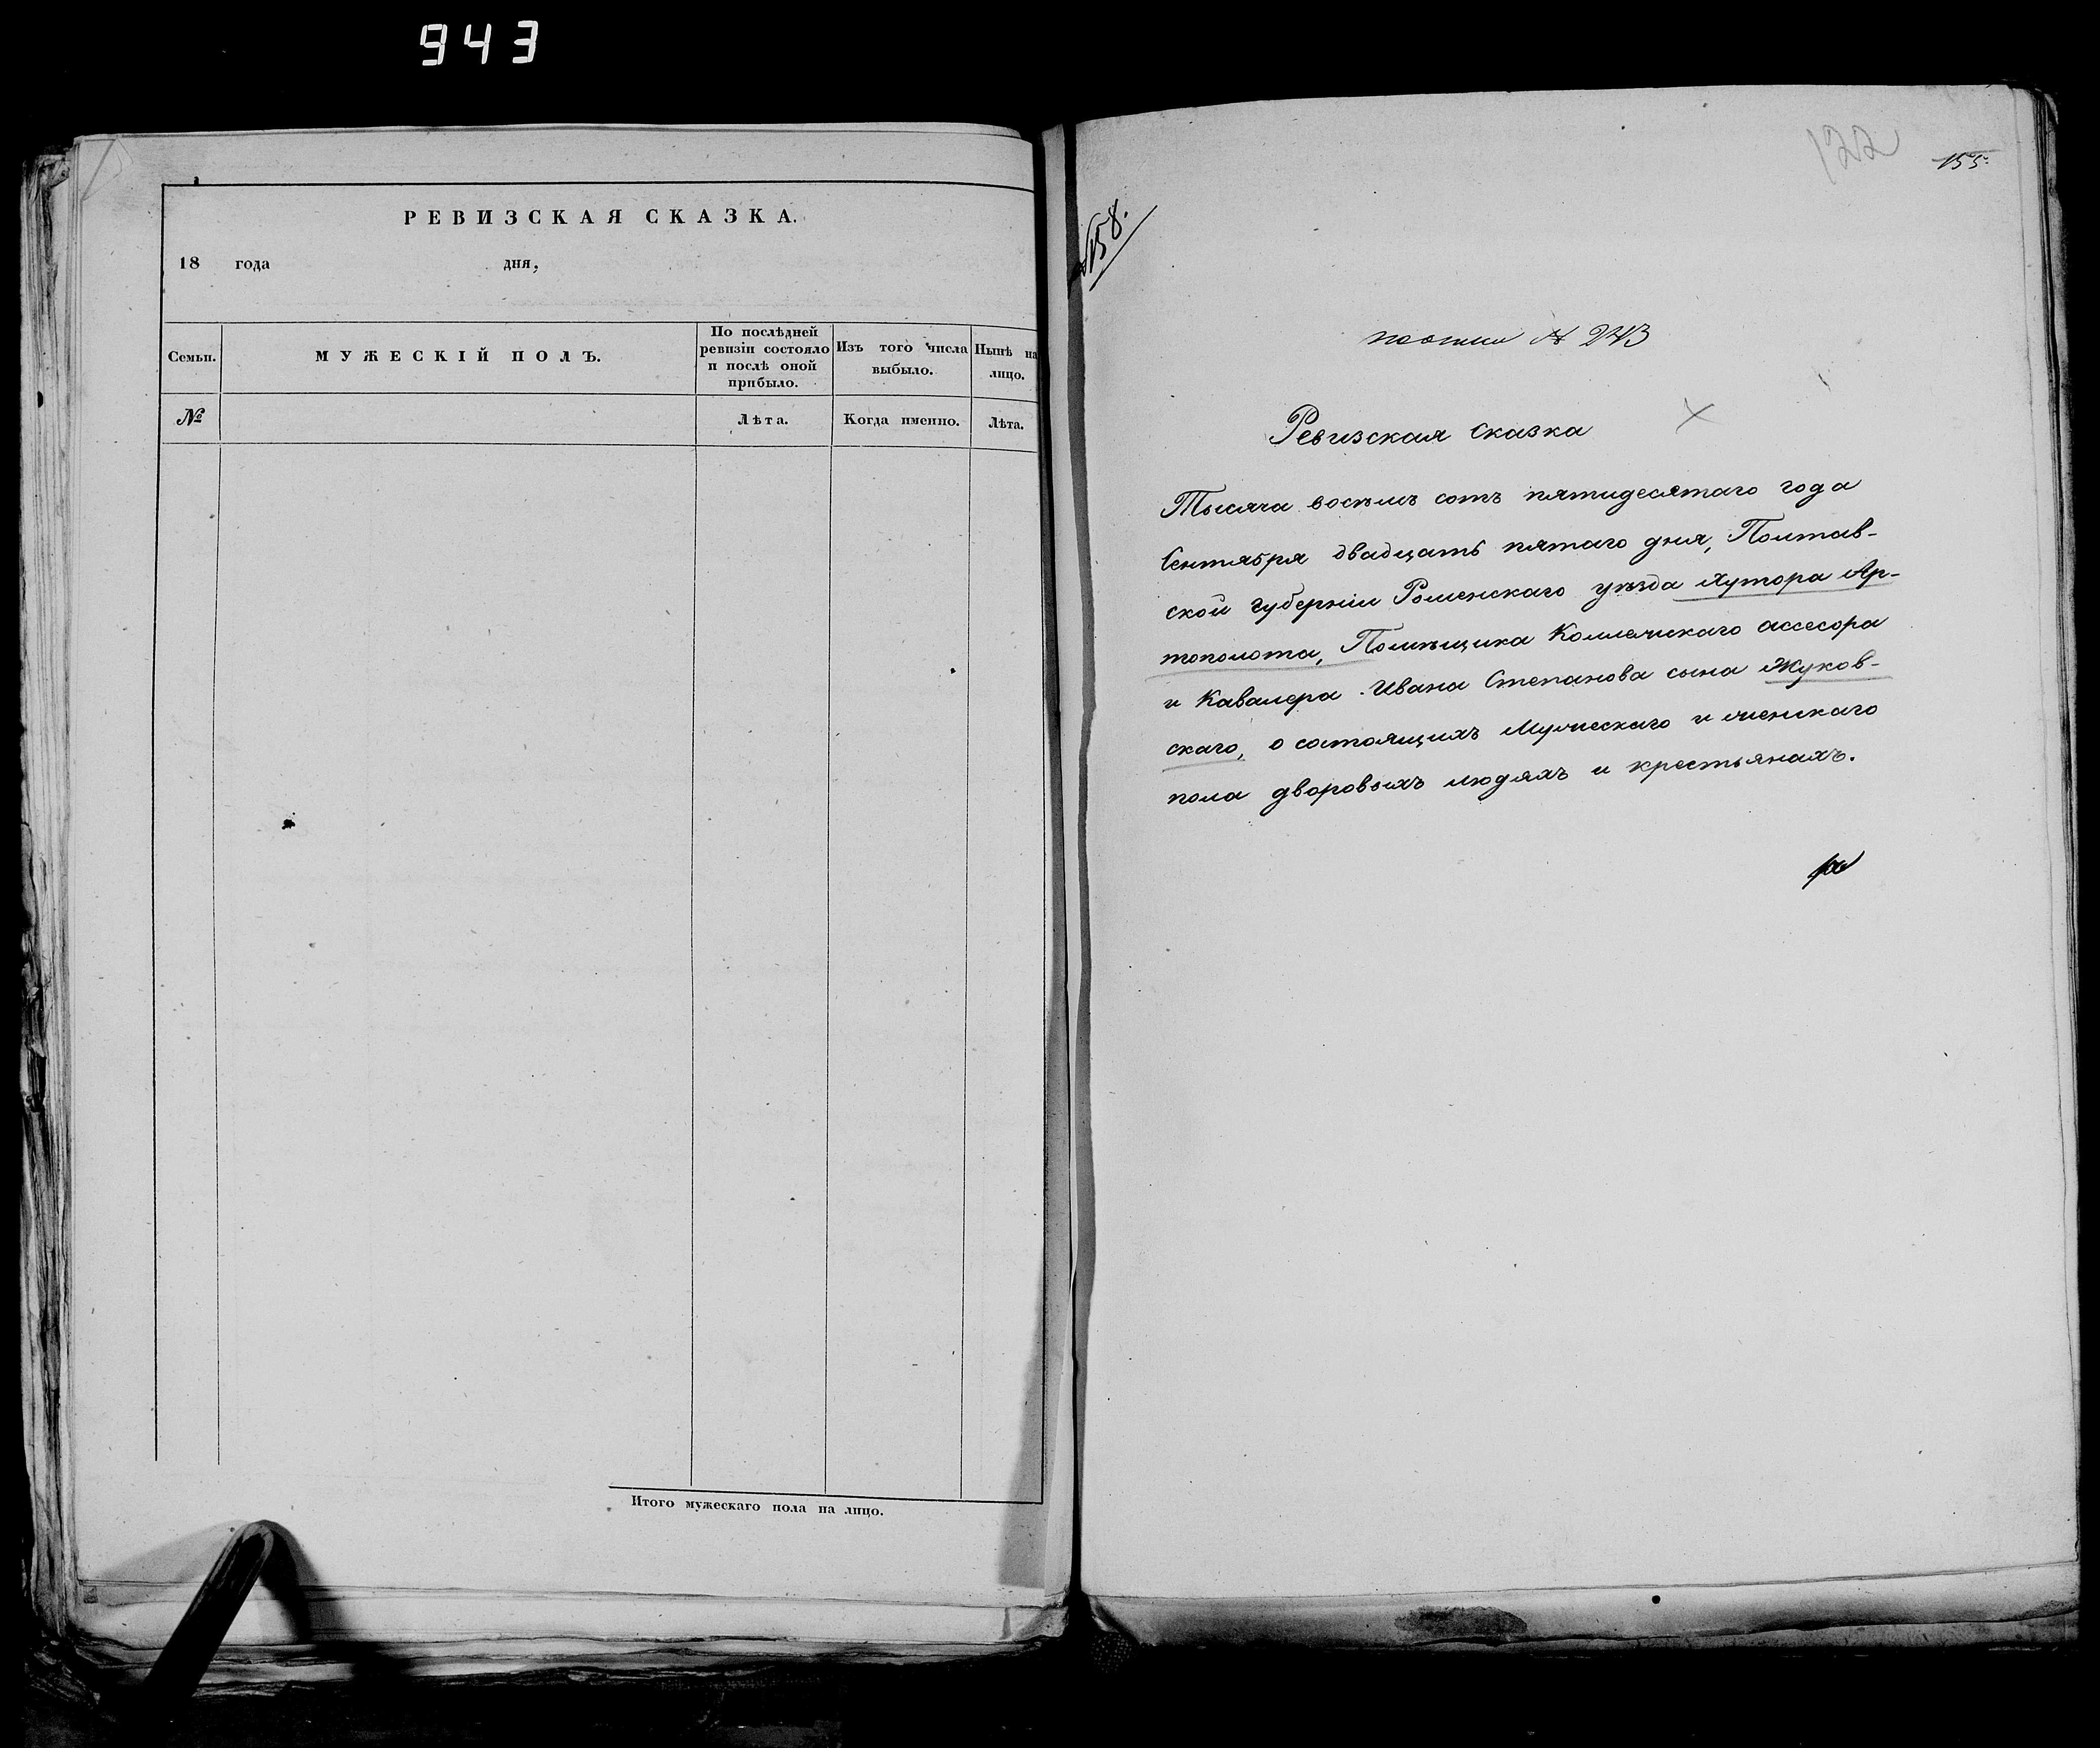 943
РЕВИЗСКАЯ СКАЗКА.
18 года дня,
Семьи.
МУЖЕСКІЙ ПОЛЪ.
По послѣдней ревизіи состояло и послѣ оной прибыло.
Изъ того числа выбыло.
Нынѣ на лицо.
№
Лѣта.
Когда именно.
Лѣта.
Итого мужескаго пола на лицо.
122
155
158.
№ 243
Ревизская сказка
Тысяча восемь сотъ пятидесятаго года
Сентября двадцать пятаго дня, Полтав-
ской губерніи Роменскаго уѣзда хутора Ар-
тополота, Помѣщика Коллежскаго ассесора
и Кавалера Ивана Степанова сына Жуков-
скаго, о состоящихъ Мужескаго и женскаго
пола дворовыхъ людяхъ и крестьянахъ.